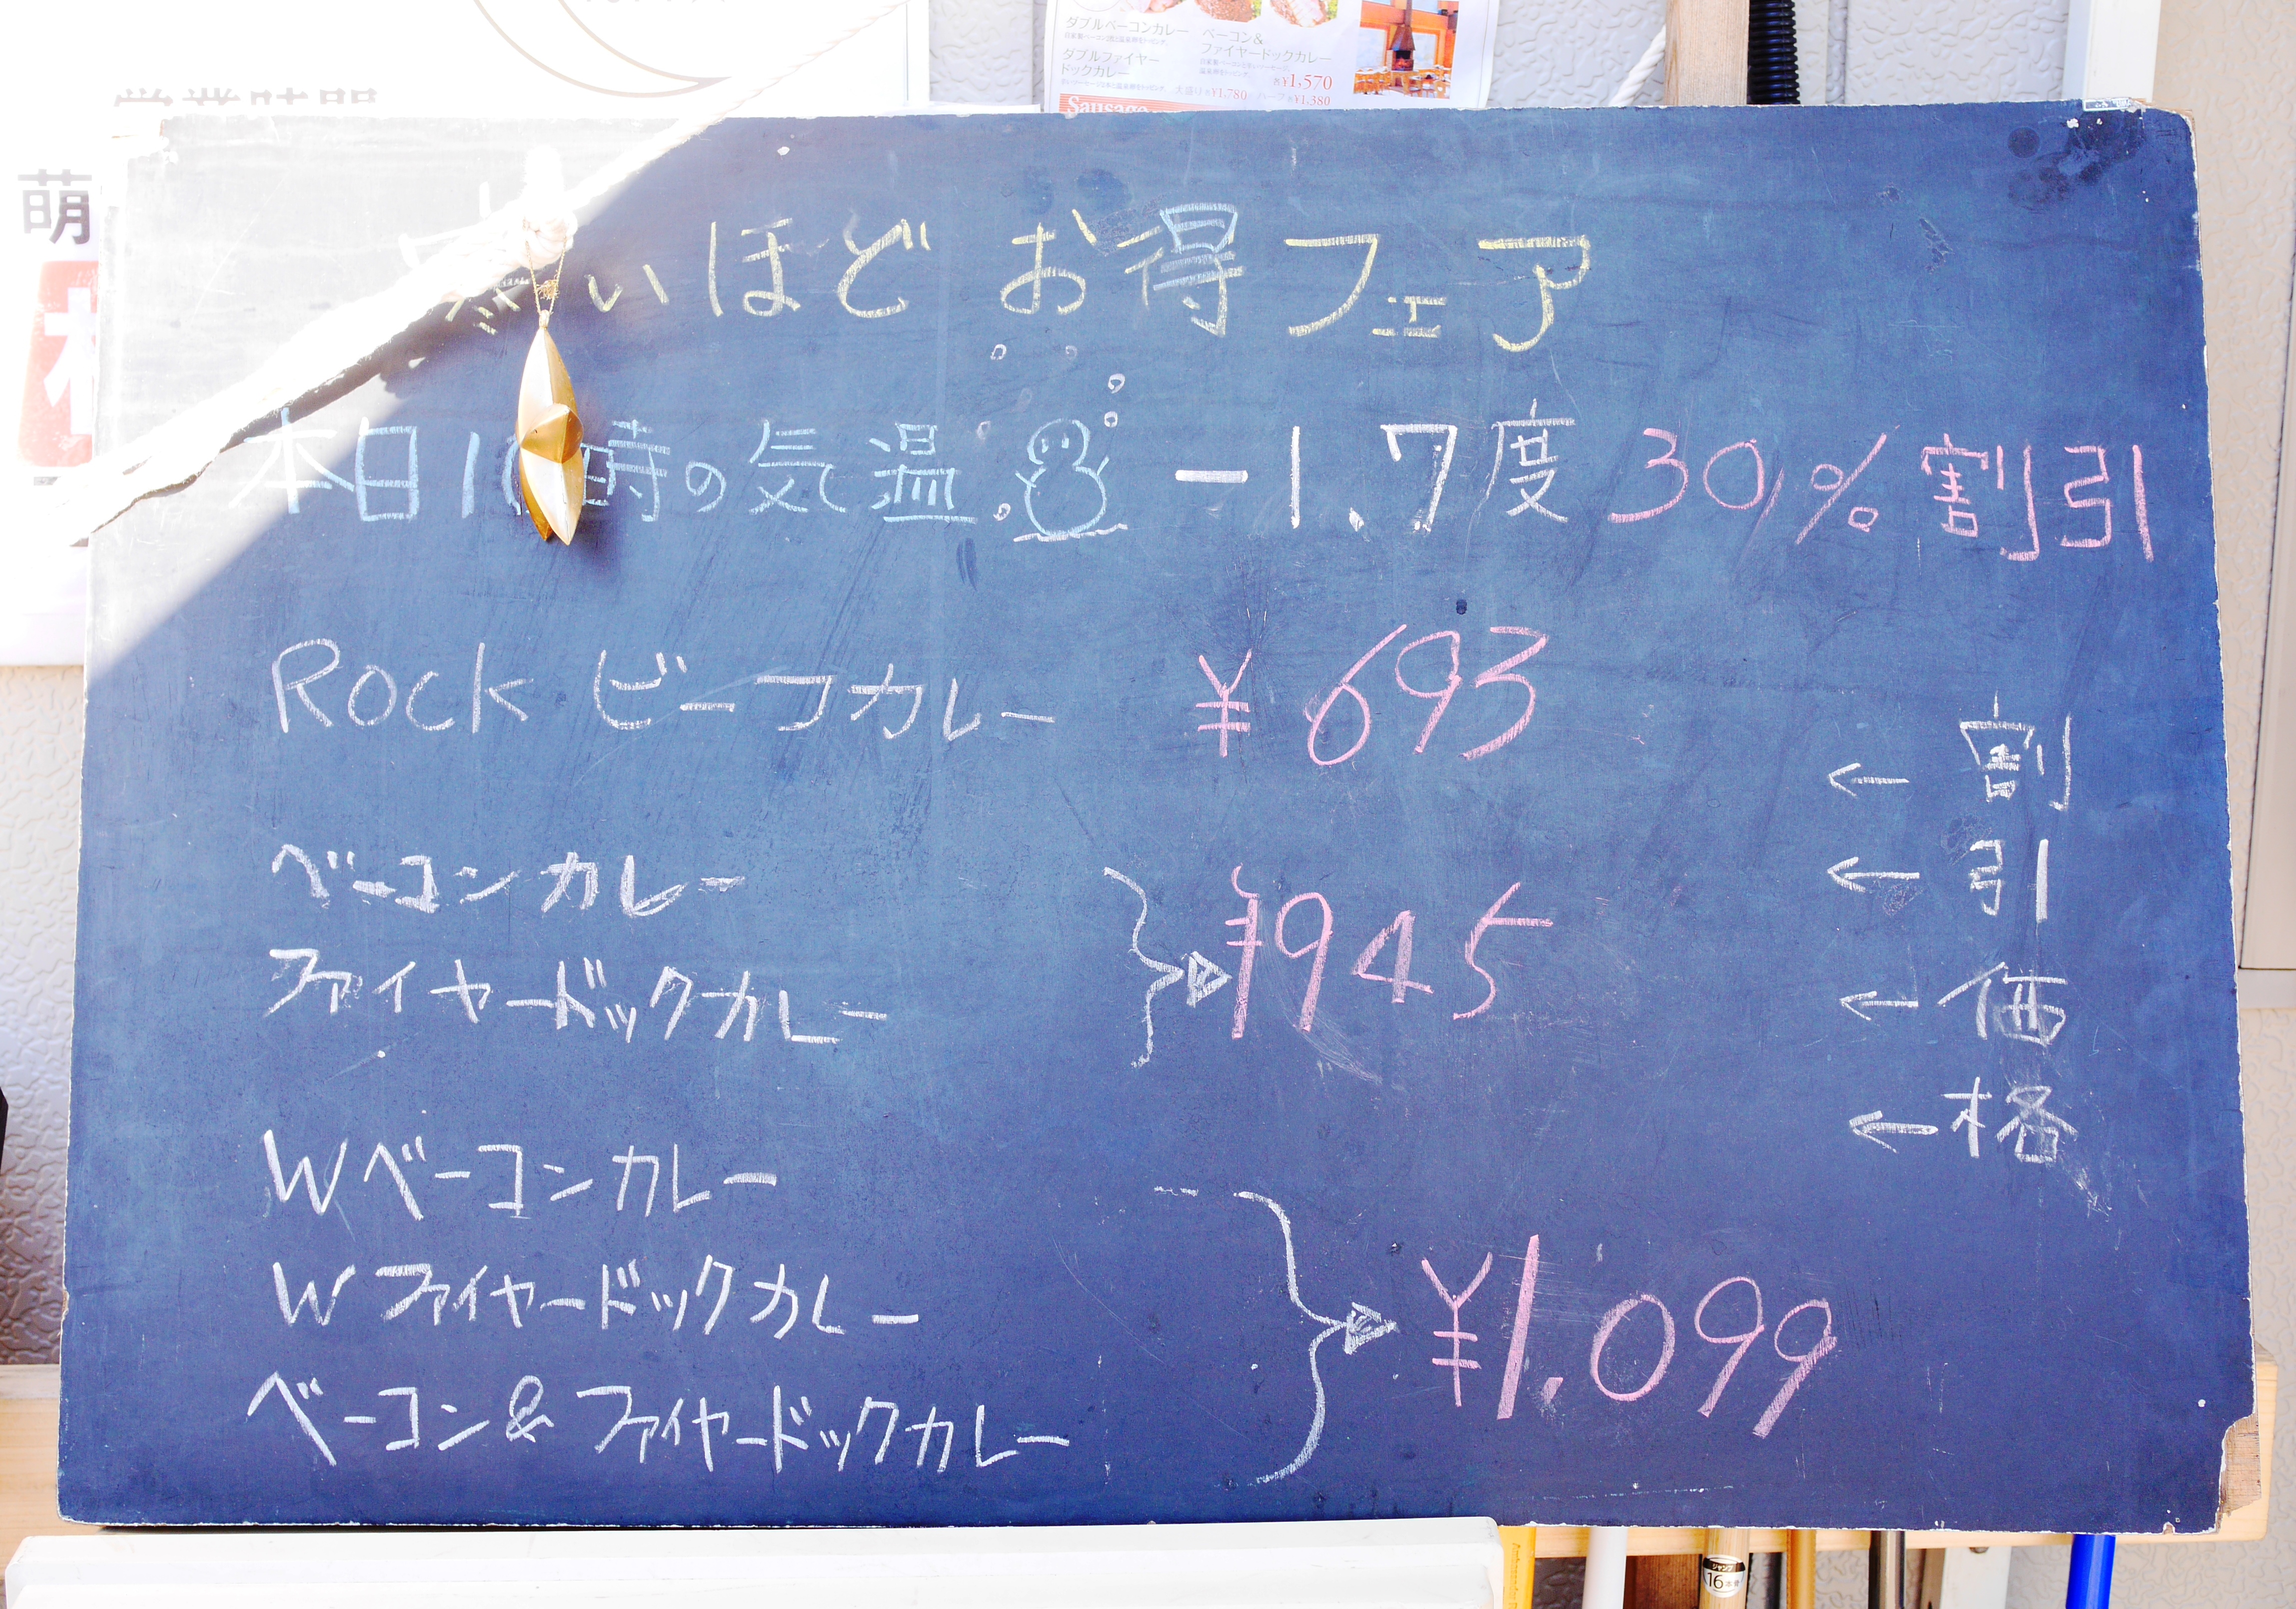 ダブルベーコンカレー
ベーコン&
ファイヤードックカレー
ダブルファイヤー
ドックカレー
各¥1,570
大盛り各¥1,780 ハーフ各¥1,380
Sausage
営業時間
萌
寒いほど お得フェア
本日10時の気温 -1.7度 30%割引
Rock ビーフカレー ¥693
ベーコンカレー
ファイヤードックカレー
¥945
Wベーコンカレー
Wファイヤードックカレー
ベーコン&ファイヤードックカレー
¥1.099
←割
←引
←価
←格
ジャンプ
16本骨